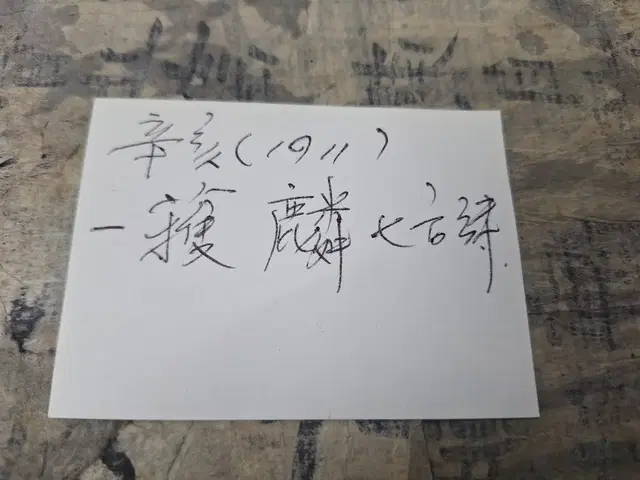 辛亥(1911)
一獲麟七言詩.